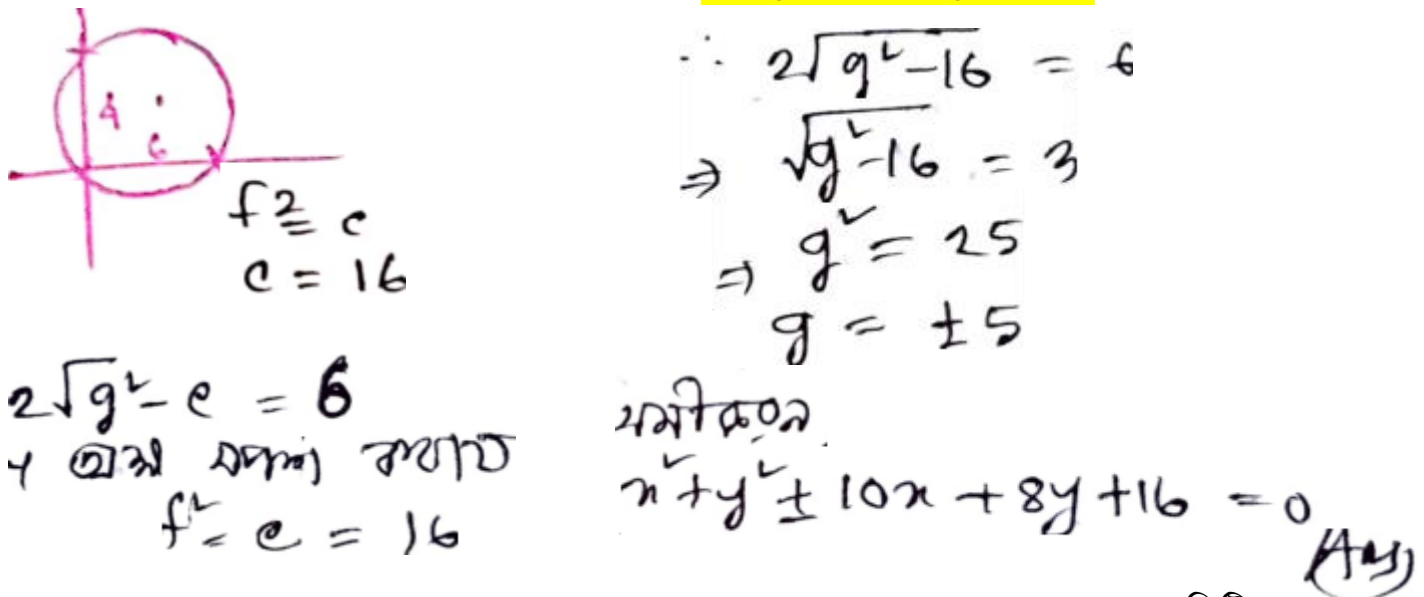 4
6
f² = c
c = 16
2√g² - c = 6
y অক্ষ
f² = c = 16
∴ 2√g²-16 = 6
⇒ √g²-16 = 3
⇒ g² = 25
g = ±5
সমীকরণ
x² + y² ± 10x + 8y + 16 = 0
(Ans)